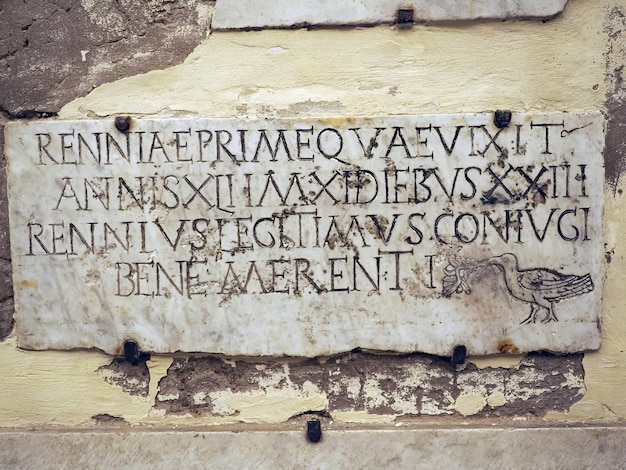 RENNIAEPRIMEQVAEVIXIT
ANNISXLIIMXIDIEBVSXXIII
RENNIVSLEGITIMVS.CONIVGI
BENE.MERENTI